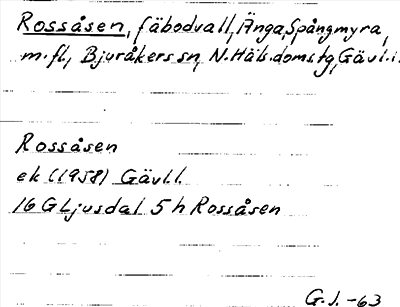 Rossåsen, fäbodvall, Änga, Spångmyra,
m.fl., Bjuråkers sn, N. Häls. doms.tg, Gävl.l.
Rossåsen
ek (1958) Gävl.l.
16 G Ljusdal 5 h Rossåsen
G.J. -63